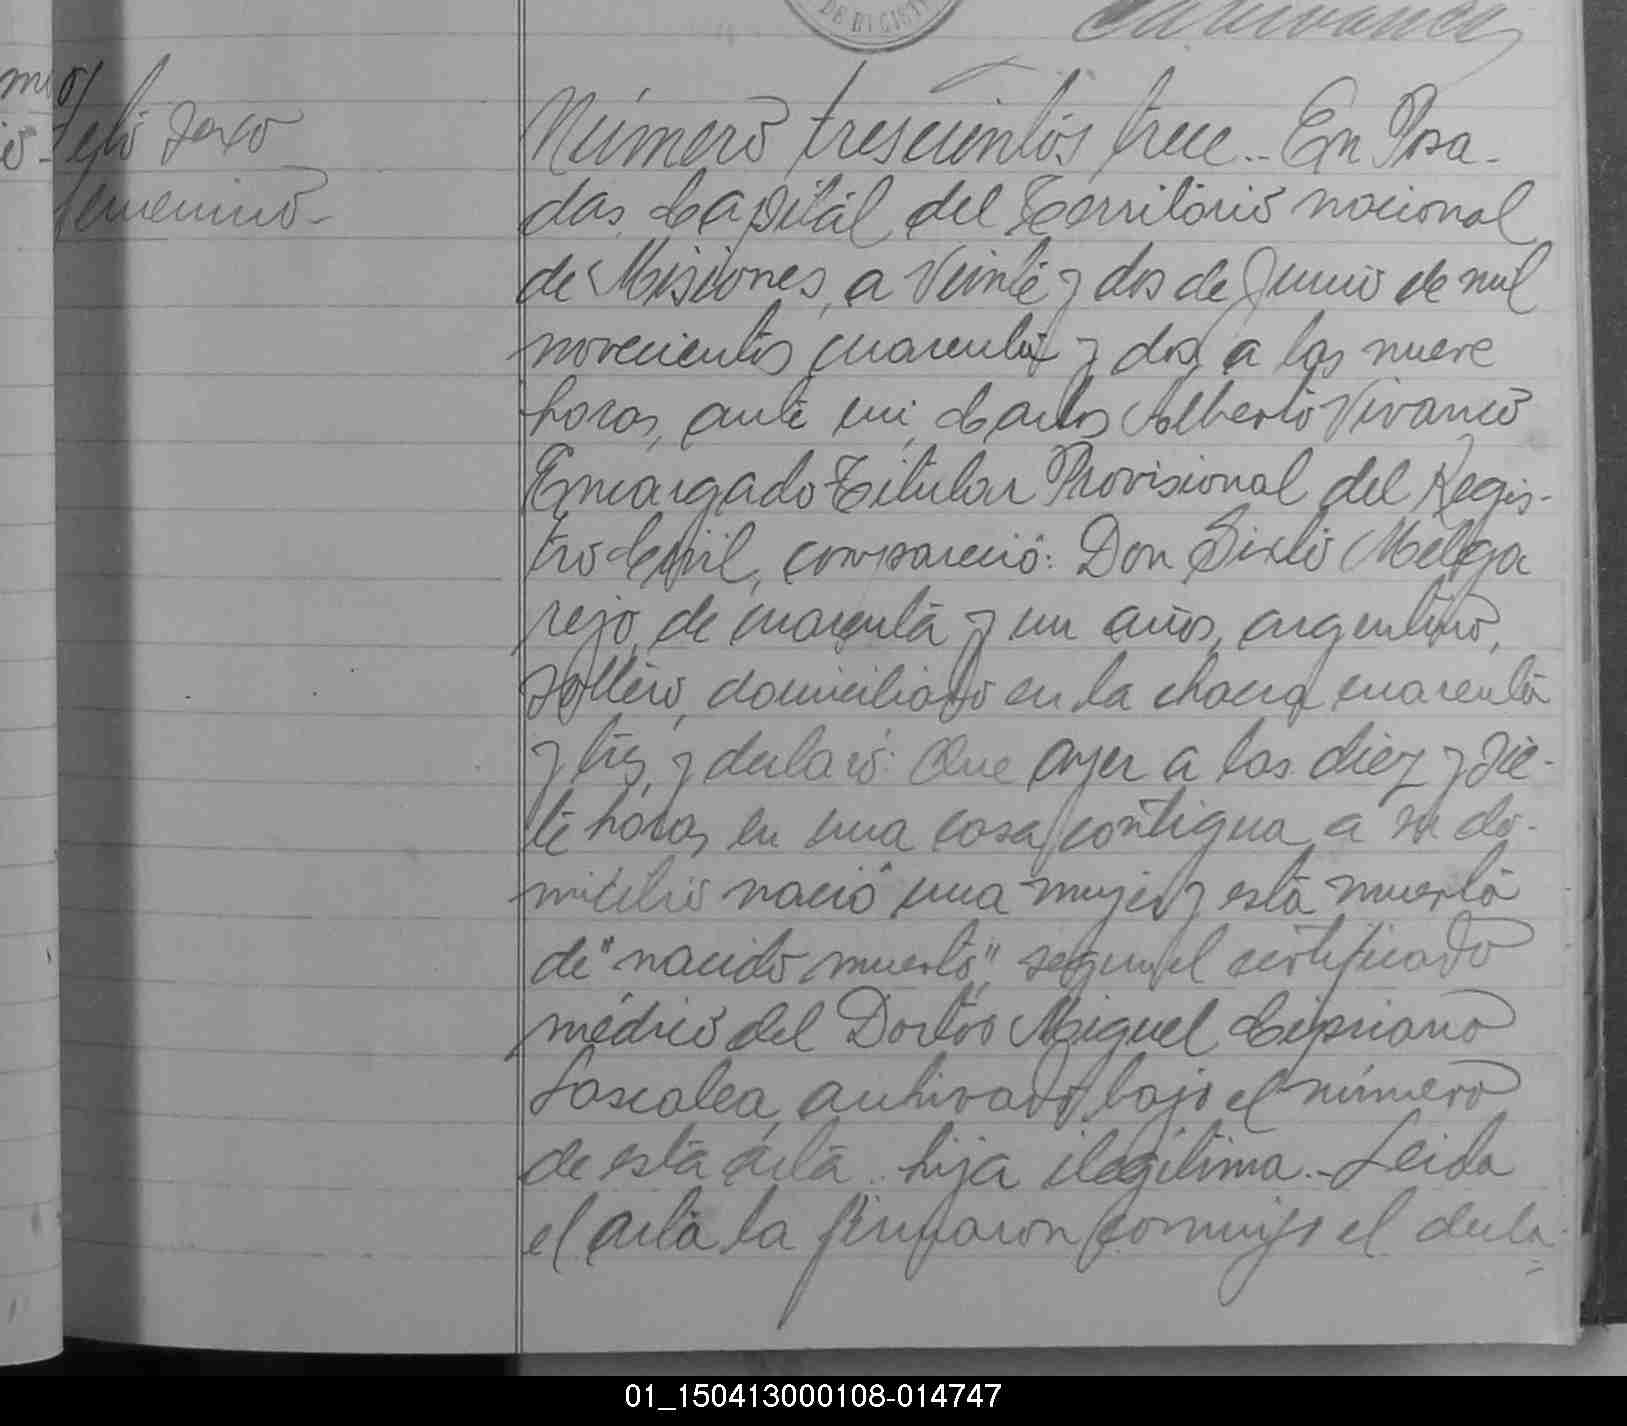 DE REGIST
Feto sexo
femenino-
Número trescientos trece.- En Posa-
das, Capital del Territorio nacional
de Misiones, a veinte y dos de Junio de mil
novecientos cuarenta y dos, a las nueve
horas, ante mi, Carlos Alberto Vivanco
Encargado Titular Provisional del Regis-
tro Civil, compareció: Don Sixto Melga
rejo, de cuarenta y un años, argentino,
soltero, domiciliado en la chacra cuarenta
y tres, y declaró: Que ayer a las diez y sie-
te horas, en una casa contigua a su do-
micilio nació una mujer y está muerta
de "nacido muerto", según el certificado
médico del Doctor Miguel Cipriano
Lascalea, archivado bajo el número
de esta acta.. hija ilegítima.- Leida
el acta la firmaron conmigo el decla-
01_150413000108-014747